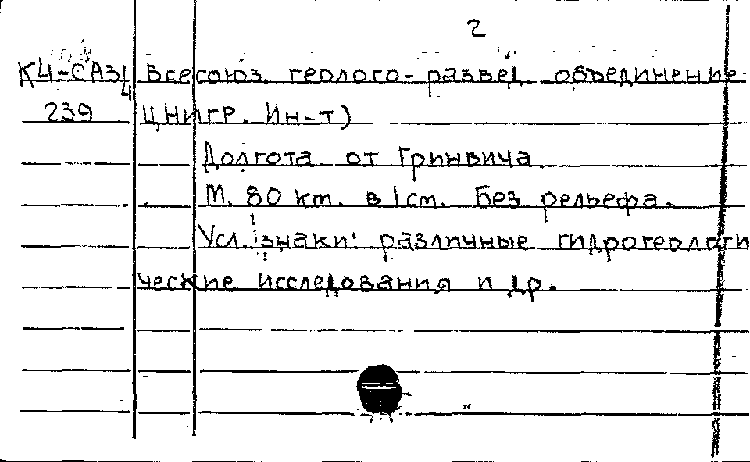 2
К4-САЗ/4 Всесоюз. геолого-развед. объединение
239 ЦНИГР. Ин-т)
Долгота от Гринвича.
М. 80 км. в 1см. Без рельефа.
Усл. знаки: различные гидрогеологи
ческие исследования и др.